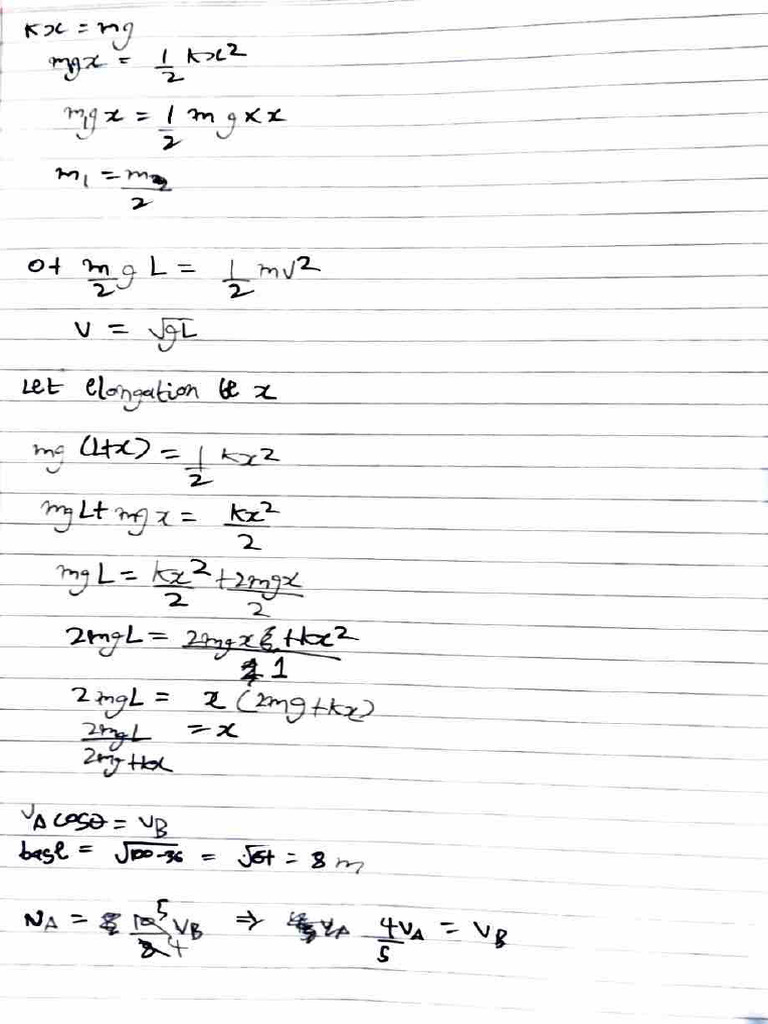 kx = mg
mgx = 1/2 kx²
m₁gx = 1/2 mg × x
m₁ = m/2
0+ m/2 g L = 1/2 mv²
v = √gL
Let elongation be x
mg (L+x) = 1/2 kx²
mgL + mgx = kx²/2
mgL = kx²/2 + 2mgx/2
2mgL = 2mgx + kx²/1
2mgL = x (2mg + kx)
2mgL/2mg + kx = x
vA cosθ = vB
base = √100-36 = √64 = 8 m
vA = 10 5/8 4 vB ⇒ 4vA/5 = vB